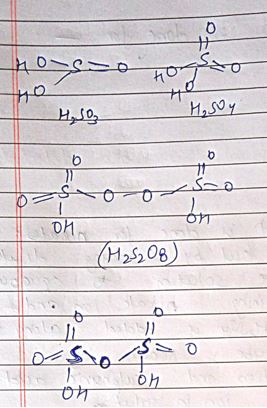 O
HO-S=O HO-S=O
HO HO
H2SO3 H2SO4
O O
O=S-O-O-S=O
OH OH
(H2S2O8)
O O
O=S O S=O
OH OH